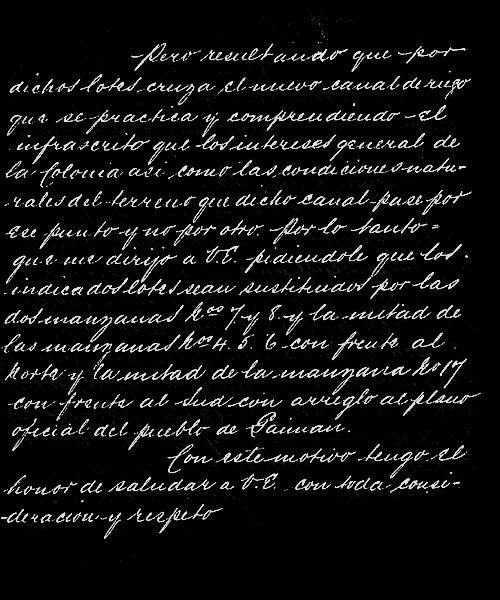 Pero resultando que por
dichos lotes cruza el nuevo canal de riego
que se practica y comprendiendo el
infrascrito que los intereses general de
la Colonia asi como las condiciones natu-
rales del terreno que dicho canal pase por
ese punto y no por otro. Por lo tanto =
que me dirijo a V.E. pidiendole que los
indicados lotes sean sustituidos por las
dos manzanas Nos 7 y 8 y la mitad de
las manzanas Nos 4. 5. 6 con frente al
Norte y la mitad de la manzana No 17
con frente al Sud con arreglo al plano
oficial del pueblo de Gaiman.
Con este motivo tengo el
honor de saludar a V.E. con toda consi-
deracion y respeto